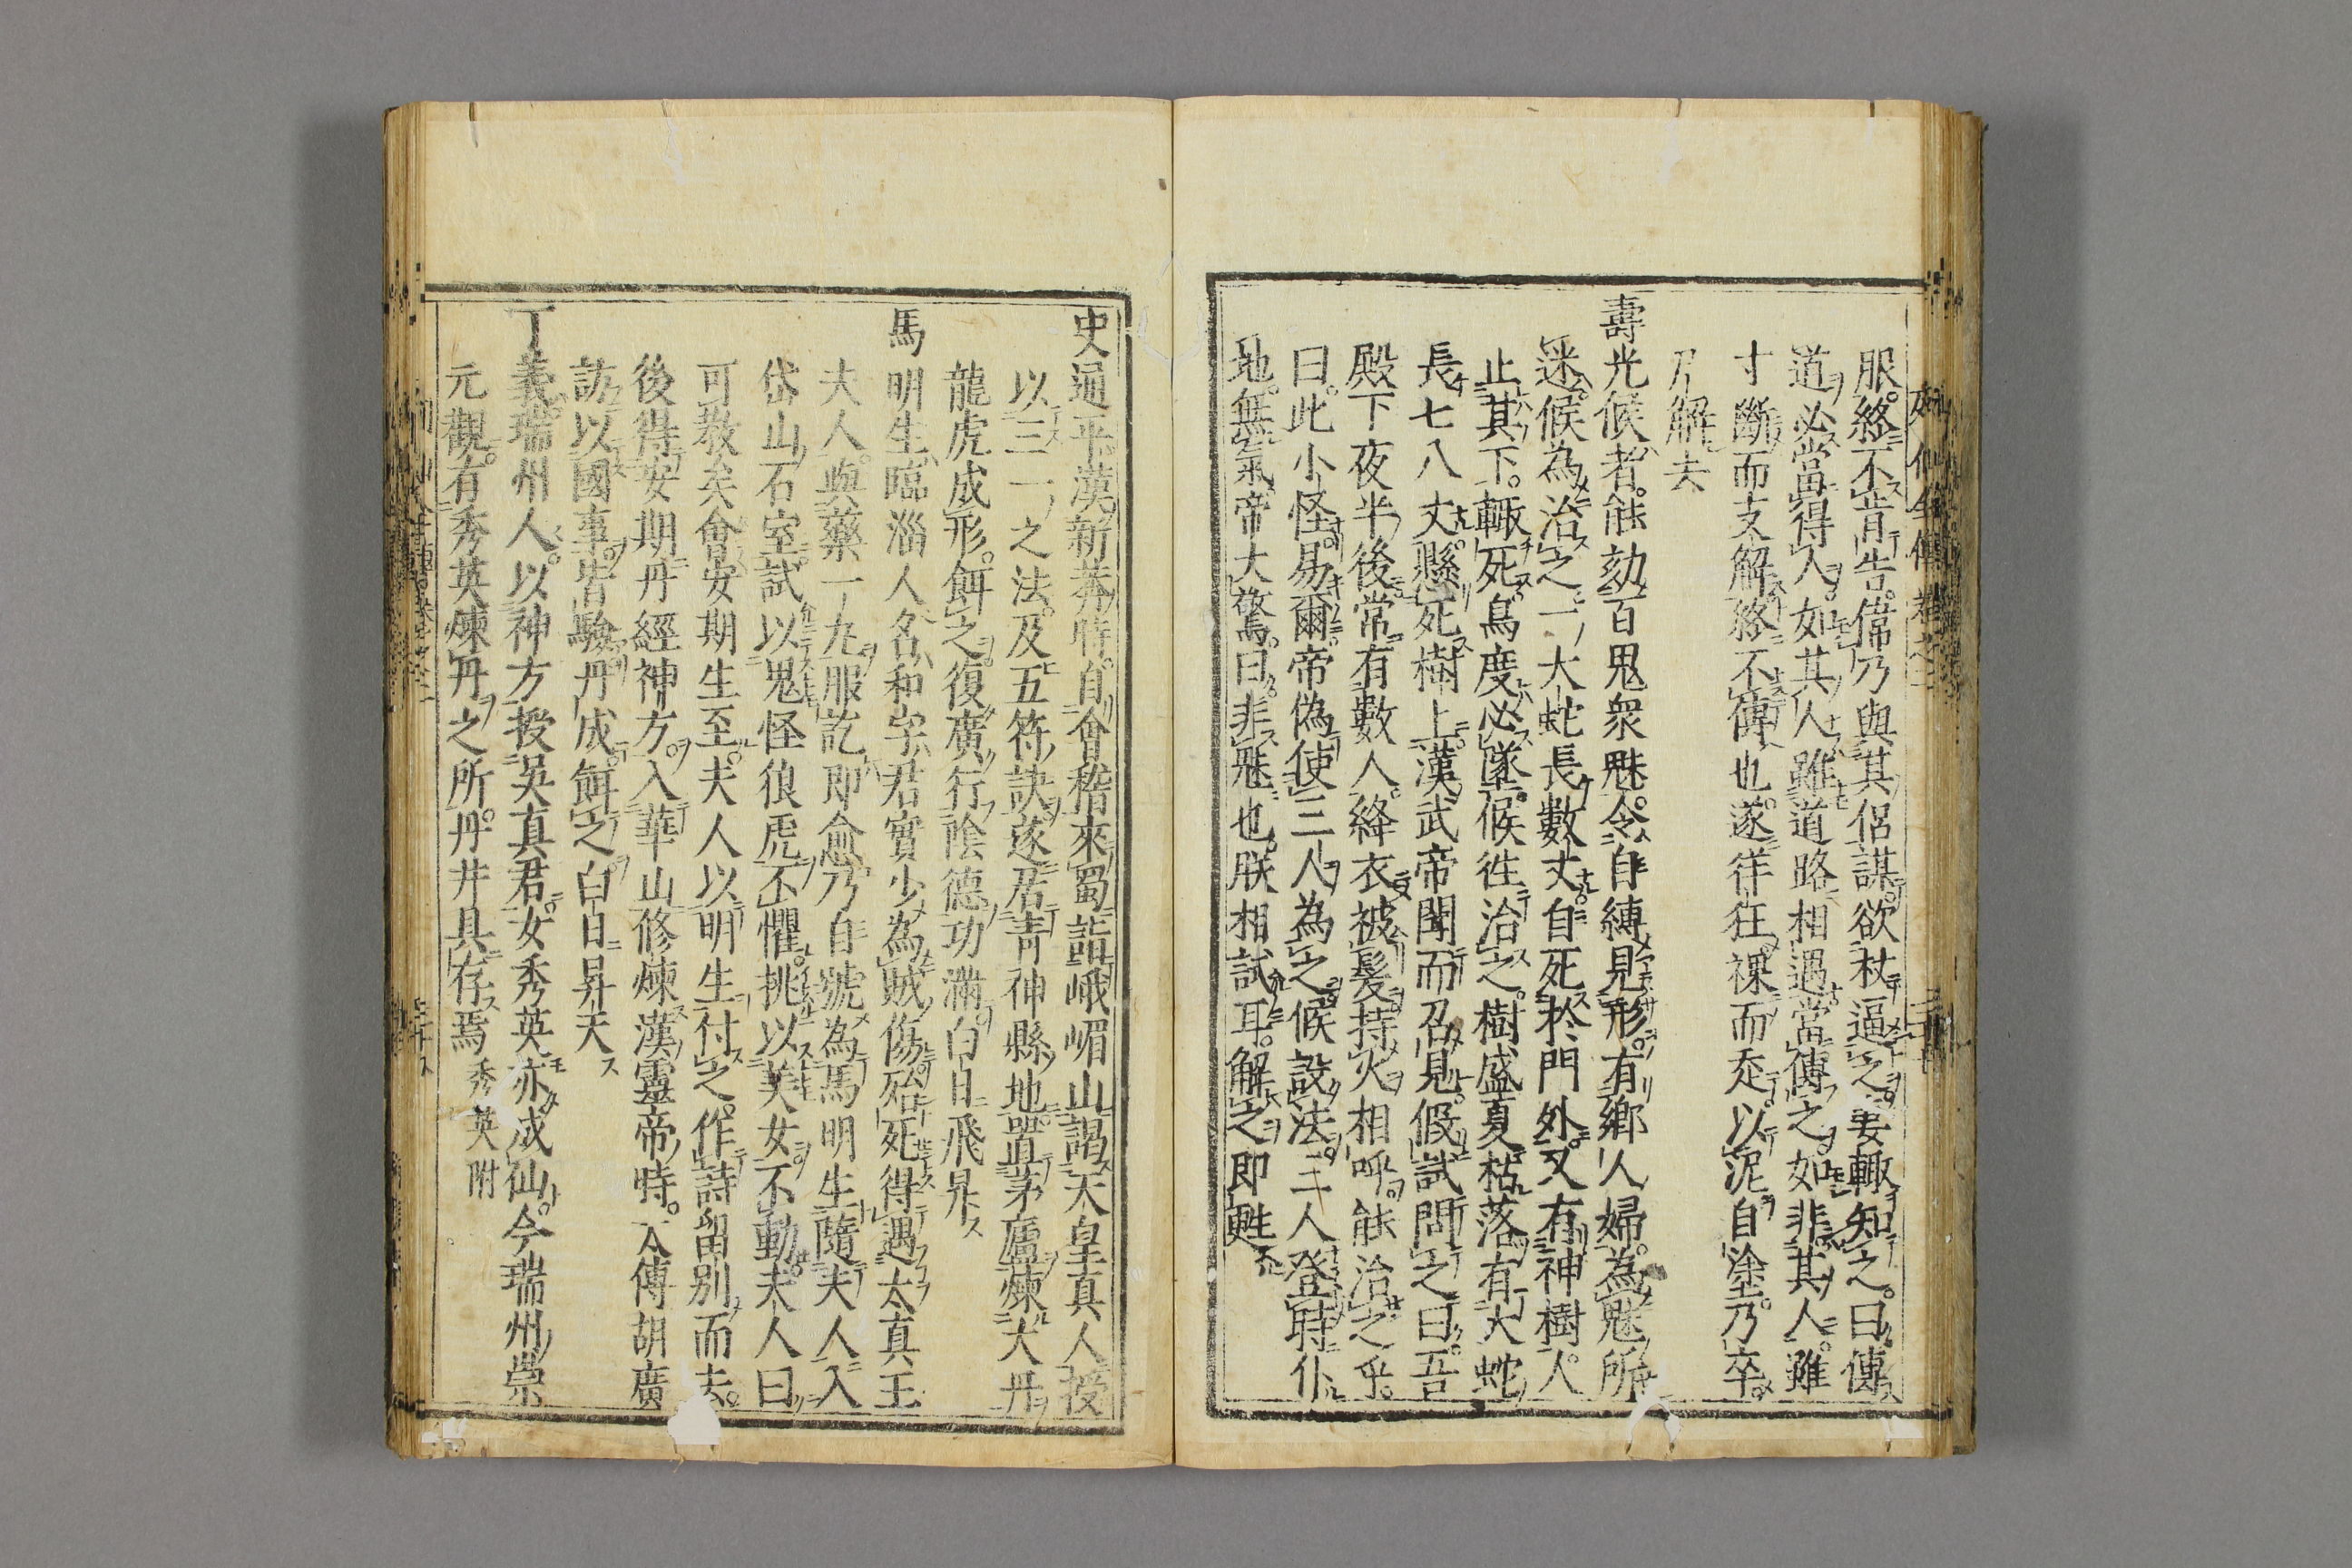 服終不肯告偉乃與其侶謀欲杖逼之妻輙知之曰傳
道必當得人如其人雖道路相遇當傳之如非其人雖
寸斷而支解終不傳也遂徉狂裸而走以泥自塗乃卒
尸解去
壽光候者能劾百鬼衆魅令自縛見形有鄉人婦為魅所
迷候為治之一大蛇長數丈自死於門外又有神樹人
止其下輙死鳥度必墜候徃治之樹盛夏枯落有大蛇
長七八丈懸死樹上漢武帝聞而召見假試問之曰吾
殿下夜半後常有數人絳衣被髪持火相呼能治之乎
曰此小怪易爾帝偽使三人為之候設法三人登時仆
地無氣帝大驚曰非魅也朕相試耳解之即甦
史通平漢新莽時自會稽來蜀詣峨嵋山謁天皇真人授
以三一之法及五符訣遂居青神縣地置茅廬煉大丹
龍虎成形餌之復廣行陰德功滿白日飛昇
馬明生臨淄人名和字君實少為賊傷殆死得遇太真王
夫人與藥一丸服訖即愈乃自號為馬明生隨夫人入
岱山石室試以鬼怪狼虎不懼挑以美女不動夫人曰
可教矣會安期生至夫人以明生付之作詩留别而去
後得安期丹經神方入華山修煉漢靈帝時太傅胡廣
訪以國事皆驗丹成餌之白日昇天
丁義瑞州人以神方授吳真君女秀英亦成仙今瑞州崇
元觀有秀英煉丹之所丹井具存焉 秀英附